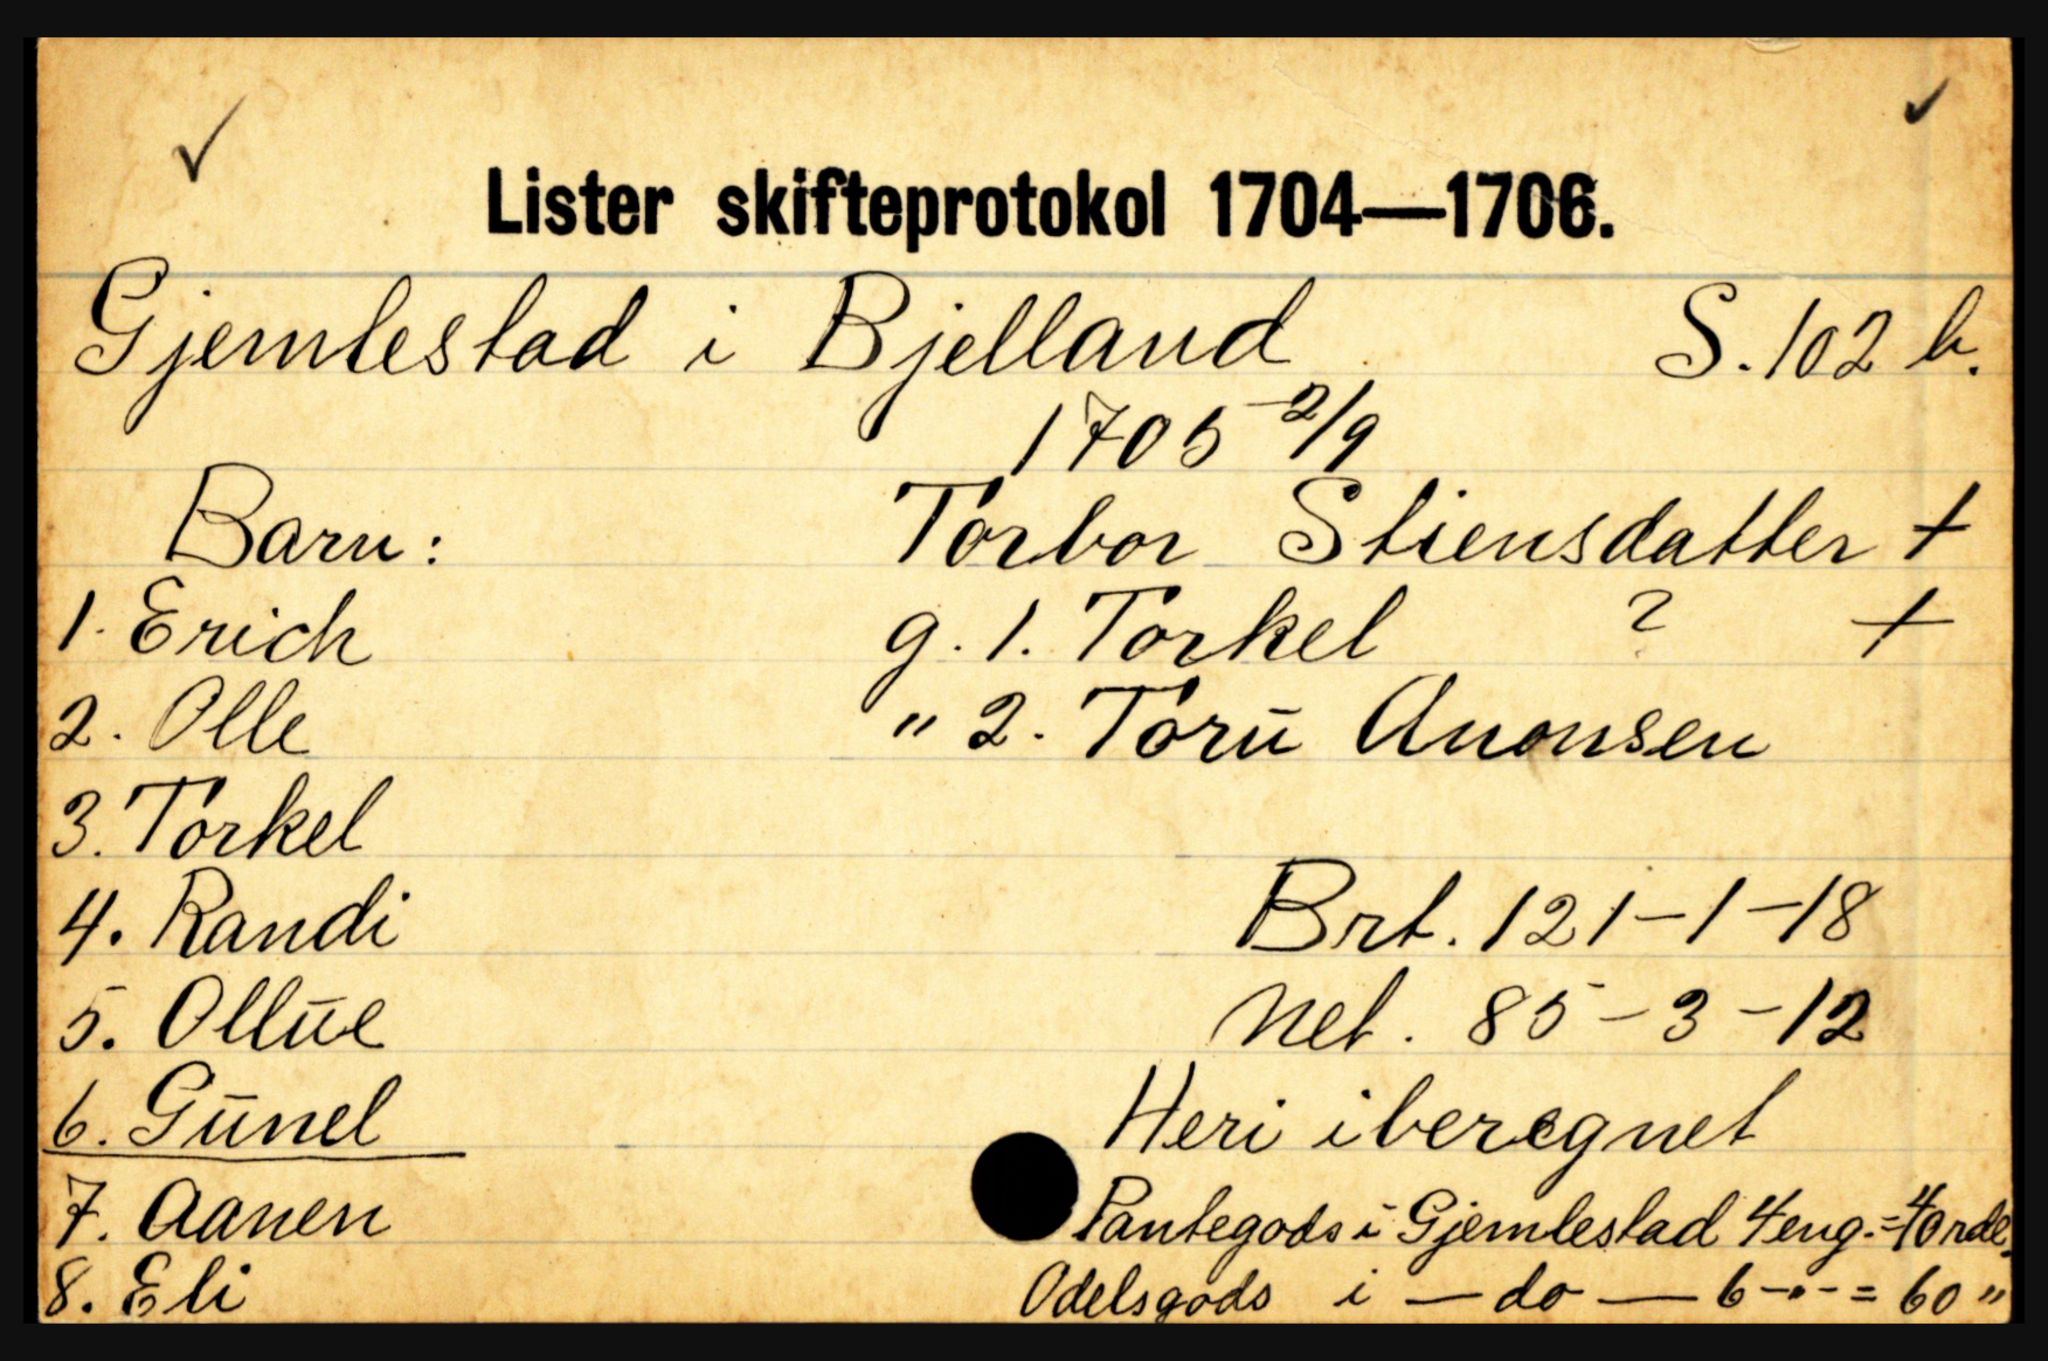 Lister skifteprotokol 1704—1706.
Gjemlestad i Bjelland S. 102 b.
1705 2/9
Barn: Torbor Stiensdatter +
1. Erich g. 1. Torkel ? +
2. Olle " 2. Torū Anonsen
3. Torkel
4. Randi Brt. 121-1-18
5. Ollūe Net. 85-3-12
6. Gūnel Heri iberegnet
7. Aanen Pantegods i Gjemlestad 4 eng. = 40 rdl.
8. Eli Odelsgods i — do — 6 -"- = 60 "